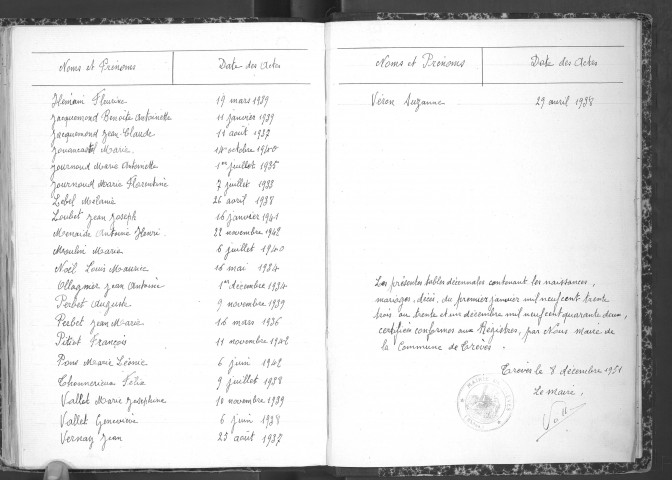 Noms et Prénoms Date des Actes
Héniain Fleurine 19 mars 1939
Jacquemond Benoîte Antoinette 11 janvier 1939
Jacquemond Jean Claude 11 août 1937
Marie 14 octobre 1940
Journoud Marie Antoinette 1er juillet 1935
Journoud Marie Florentine 7 juillet 1938
Lebel Mélanie 26 avril 1938
Loubet Jean Joseph 16 janvier 1941
Antoine Henri 22 novembre 1942
Moulin Marie 6 juillet 1940
Noël Louis Maurice 16 mai 1934
Ollagnier Jean Antoine 1er décembre 1934
Perbet Auguste 9 novembre 1939
Perbet Jean Marie 16 mars 1936
Pitiot François 11 novembre 1942
Pons Marie Léonie 6 juin 1942
9 juillet 1938
Vallet Marie Joséphine 10 novembre 1939
Vallet Geneviève 6 juin 1938
Vernay Jean 25 août 1937
Noms et Prénoms Date des Actes
Véron Suzanne 29 avril 1938
Les présentes tables décennales contenant les naissances,
mariages, décès, du premier janvier mil neuf cent trente
trois au trente et un décembre mil neuf cent quarante deux,
certifiées conformes aux Registres, par Nous maire de
la Commune de Trèves.
Trèves le 8 décembre 1951
Le Maire,